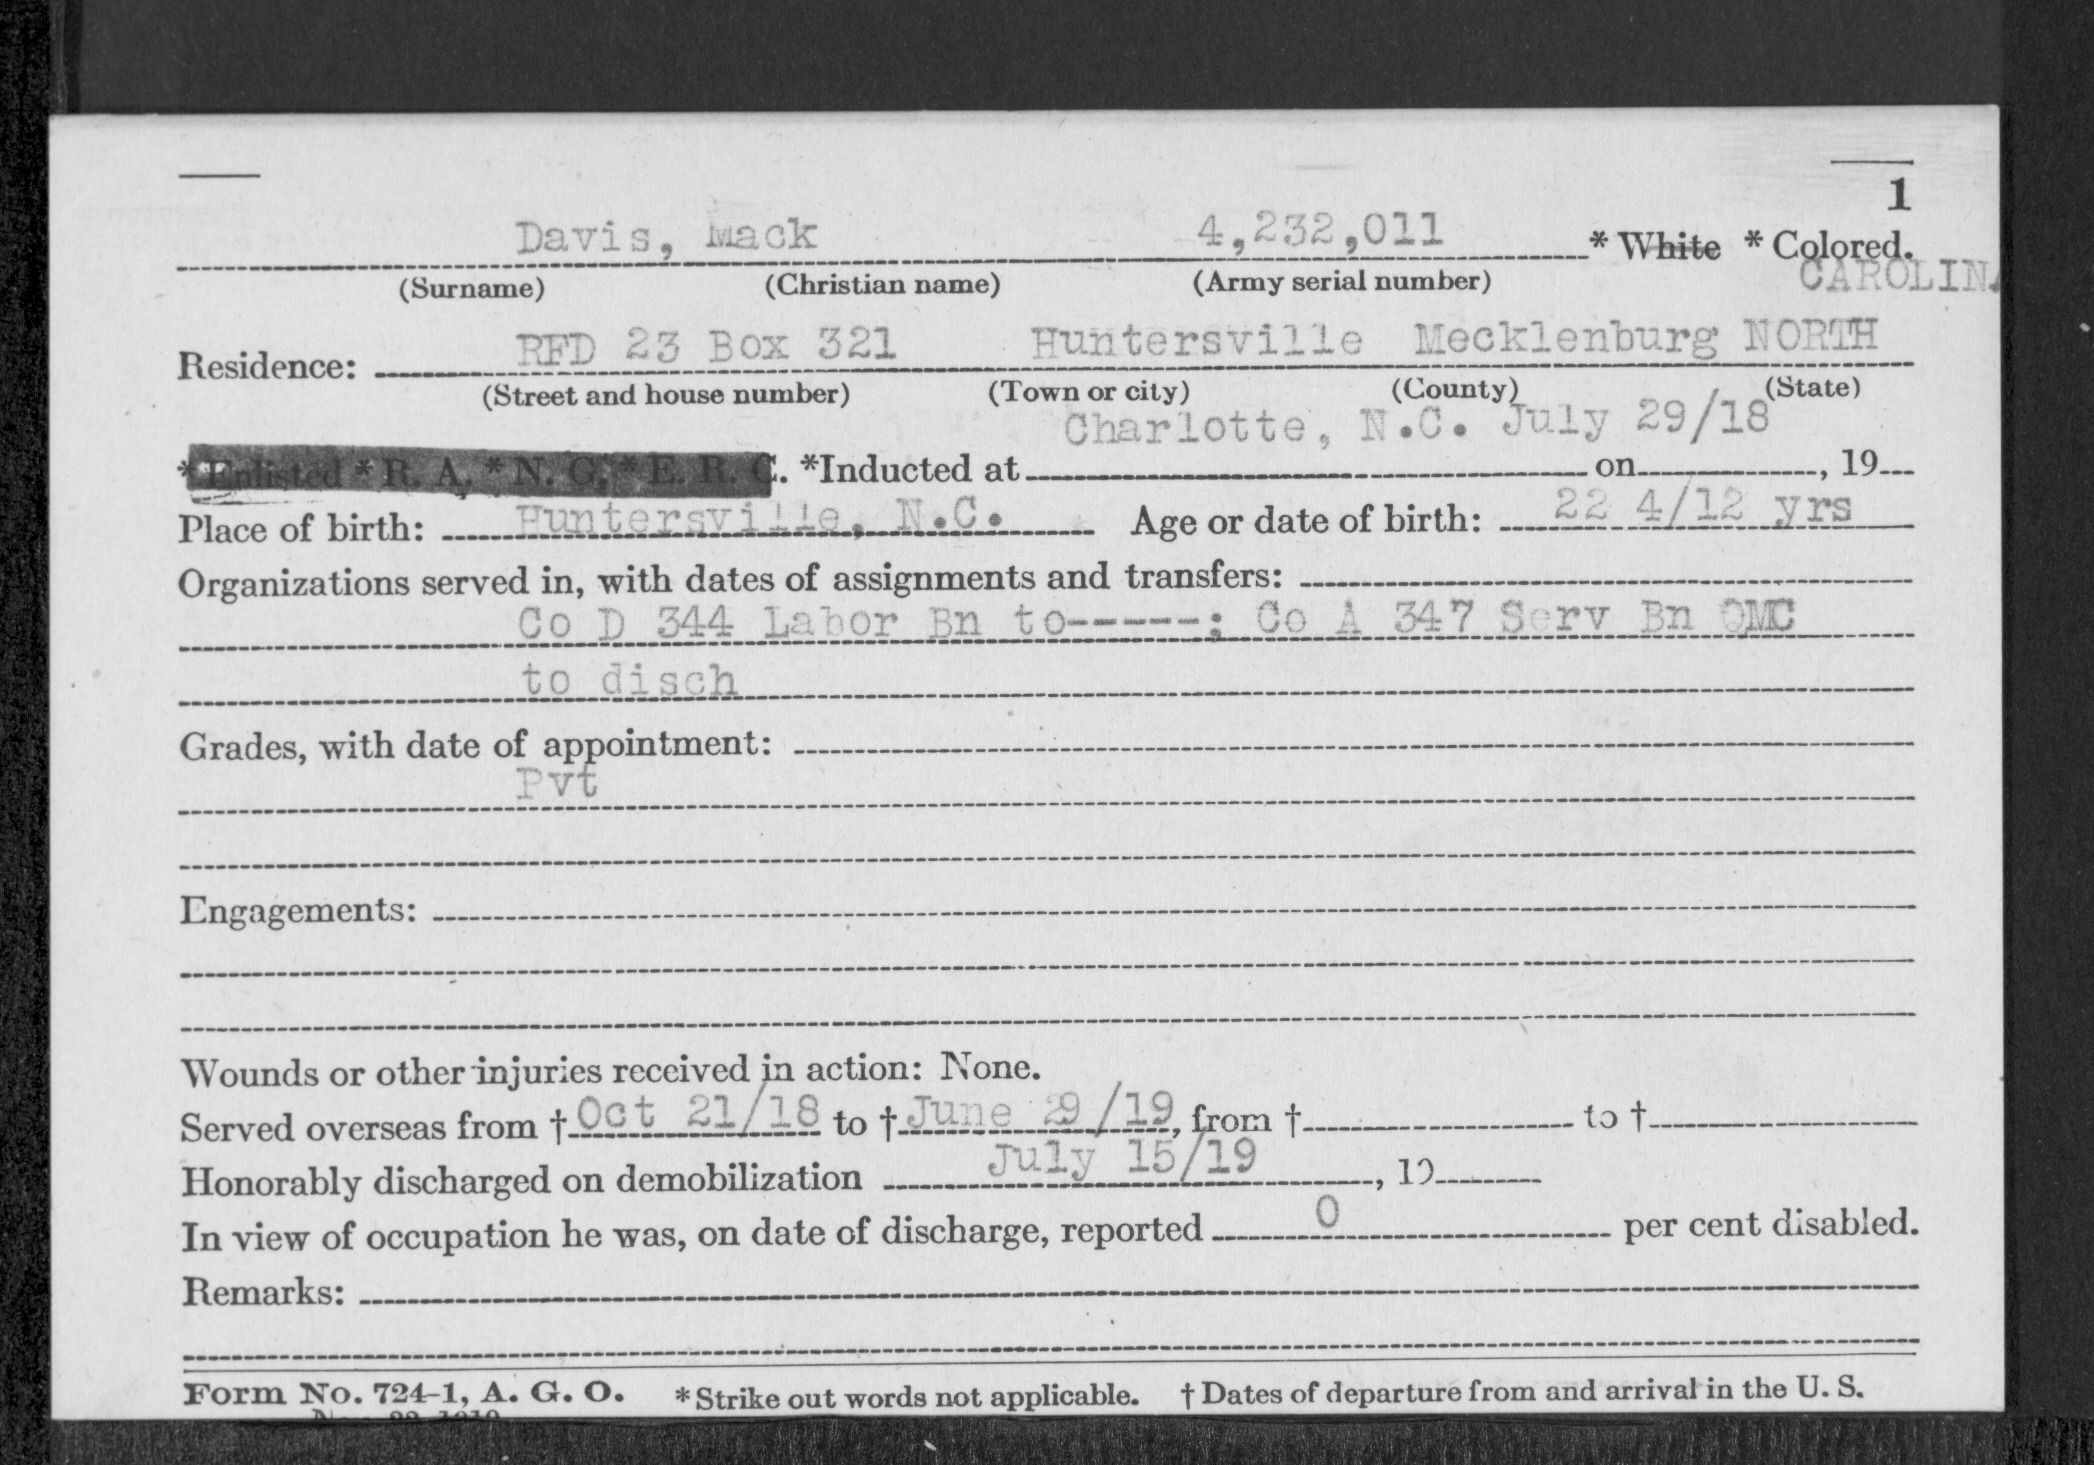 1
Davis, Mack 4,232,011 * White * Colored.
(Surname) (Christian name) (Army serial number)
CAROLINA
Residence: RFD 23 Box 321 Huntersville Mecklenburg NORTH
(Street and house number) (Town or city) (County) (State)
Charlotte, N.C. July 29/18
* Enlisted * R. A. * N. G. * E. R. C. *Inducted at on , 19
Place of birth: Huntersville, N.C. Age or date of birth: 22 4/12 yrs
Organizations served in, with dates of assignments and transfers:
Co D 344 Labor Bn to-----; Co A 347 Serv Bn QMC
to disch
Grades, with date of appointment:
Pvt
Engagements:
Wounds or other injuries received in action: None.
Served overseas from † Oct 21/18 to † June 29/19, from † to †
Honorably discharged on demobilization July 15/19, 19
In view of occupation he was, on date of discharge, reported 0 per cent disabled.
Remarks:
Form No. 724-1, A. G. O. * Strike out words not applicable. † Dates of departure from and arrival in the U. S.